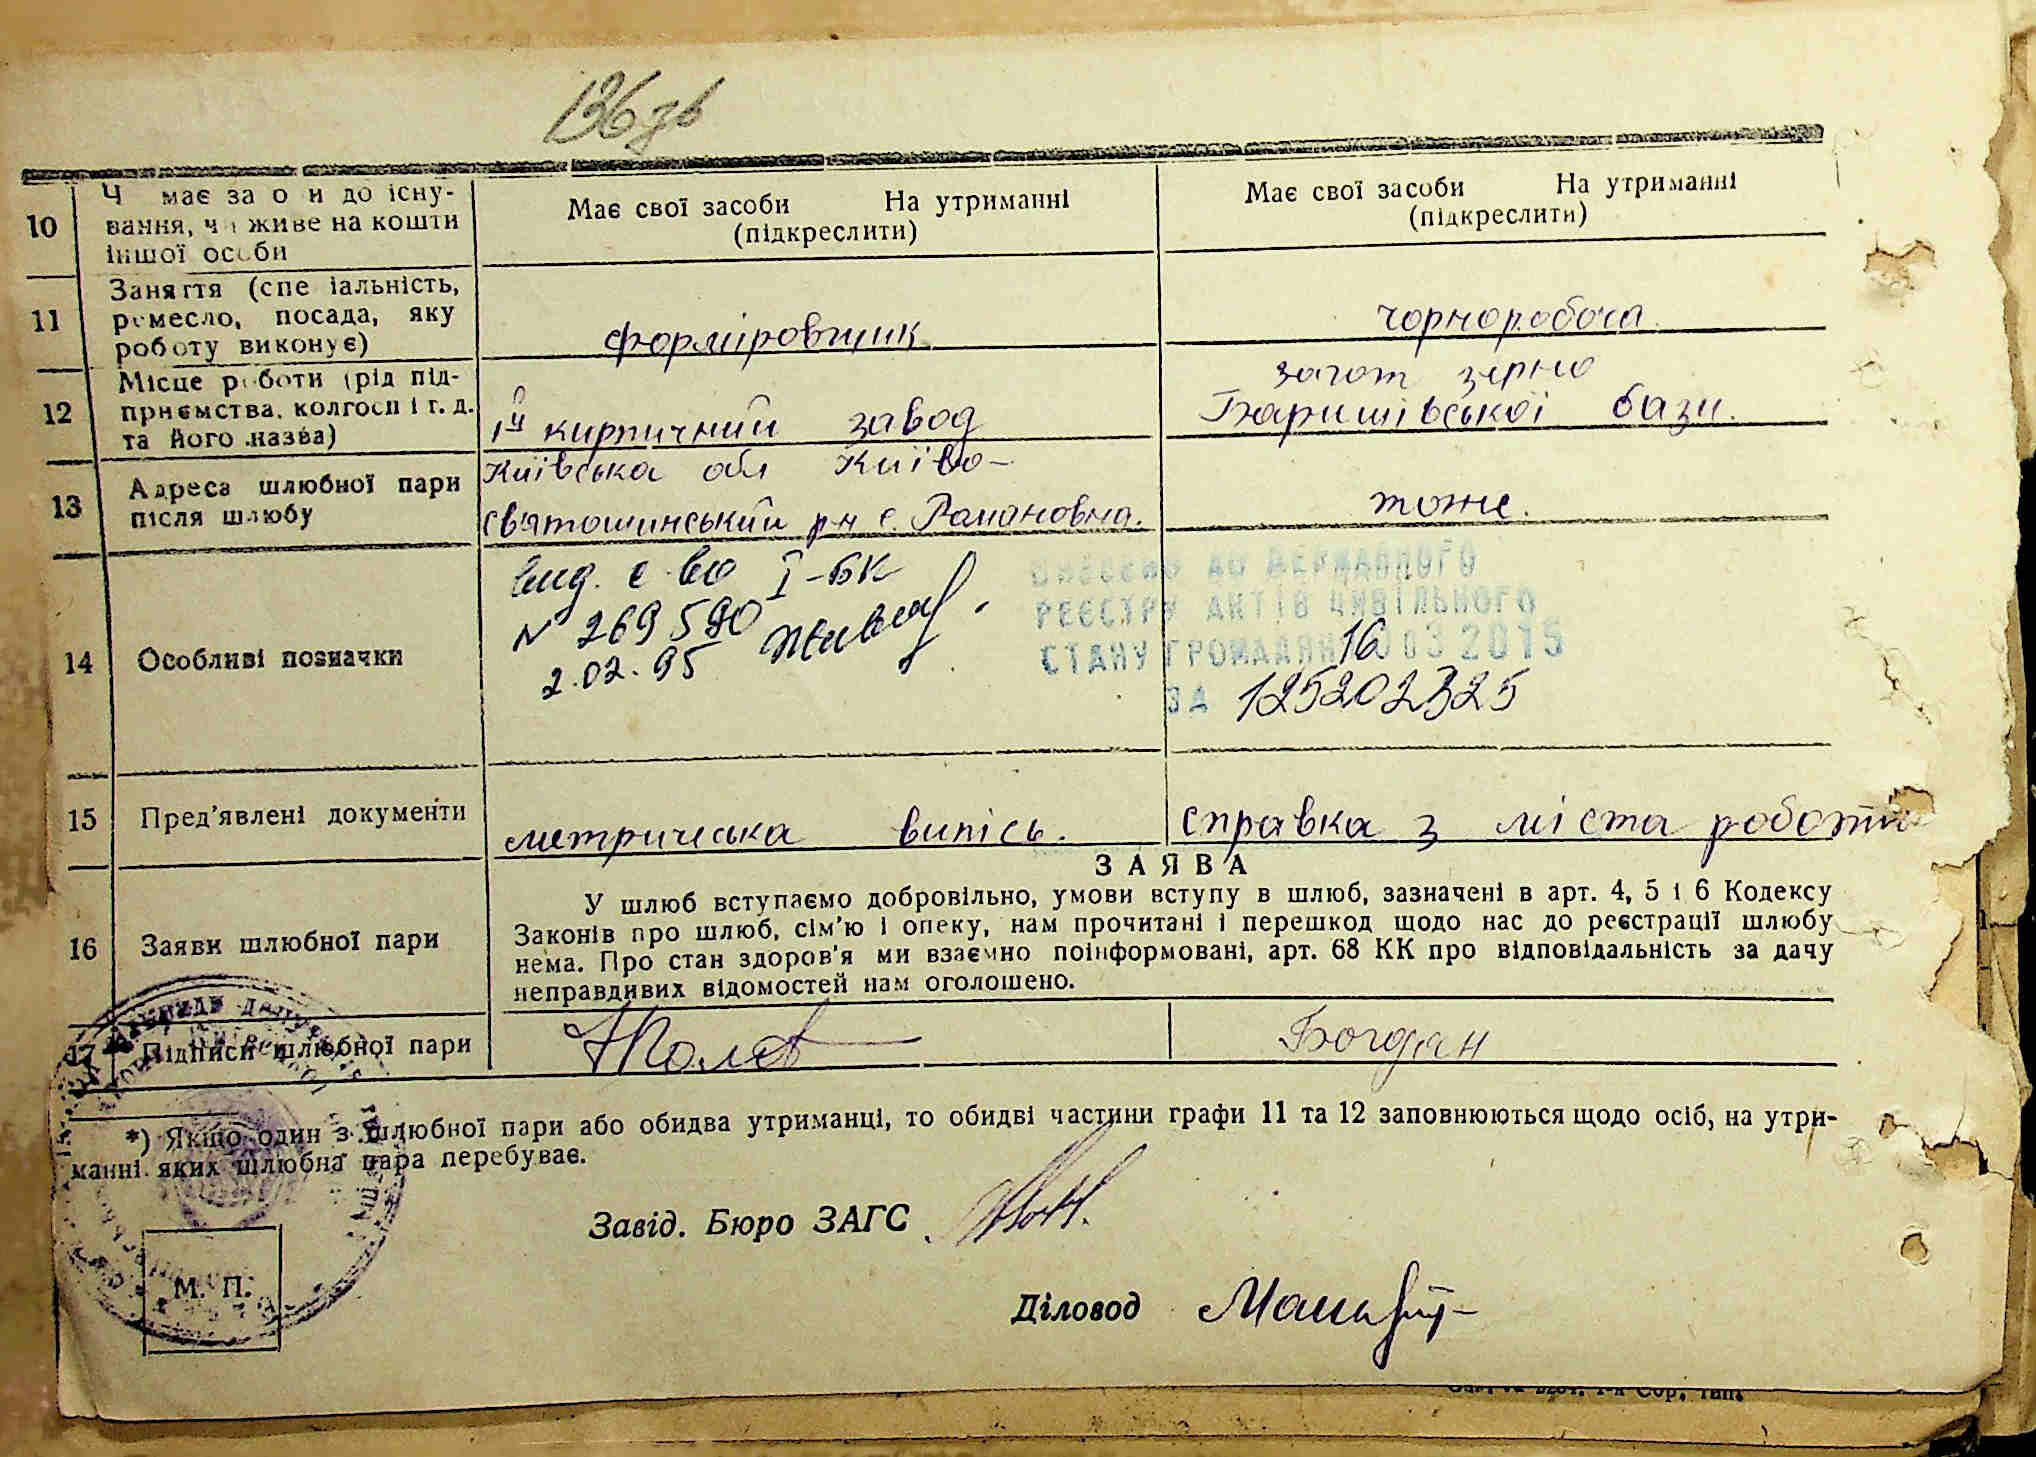 136 зв
10
Ч має за о и до існу-
вання, чи живе на кошти
іншої особи
Має свої засоби На утриманні
(підкреслити)
Має свої засоби На утриманні
(підкреслити)
11
Заняття (спе іальність,
ремесло, посада, яку
роботу виконує)
формировщик
чорноробоча
12
Місце роботи (рід під-
приємства, колгосп і г. д.
та його назва)
1й кирпичний завод
загот зерно
Баришівської бази.
13
Адреса шлюбної пари
після шлюбу
Київська обл Київо-
святошинський р-н с. Романовна.
тоже.
14
Особливі позначки
вид. с-во I-БК
№ 269590
2.02.95
ВНЕСЕНО ДО ДЕРЖАВНОГО
РЕЄСТРУ АКТІВ ЦИВІЛЬНОГО
СТАНУ ГРОМАДЯН 16 03 2015
ЗА 125202325
15
Пред'явлені документи
метричеська випісь.
справка з міста роботи
16
Заяви шлюбної пари
ЗАЯВА
У шлюб вступаємо добровільно, умови вступу в шлюб, зазначені в арт. 4, 5 і 6 Кодексу
Законів про шлюб, сім'ю і опеку, нам прочитані і перешкод щодо нас до реєстрації шлюбу
нема. Про стан здоров'я ми взаємно поінформовані, арт. 68 КК про відповідальність за дачу
неправдивих відомостей нам оголошено.
17
Підписи шлюбної пари
Богдан
*) Якщо один з шлюбної пари або обидва утриманці, то обидві частини графи 11 та 12 заповнюються щодо осіб, на утри-
манні яких шлюбна пара перебуває.
Завід. Бюро ЗАГС
Діловод
М. П.